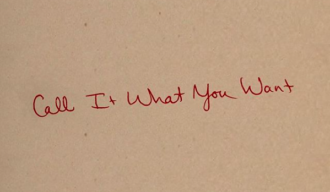 Call It What You Want